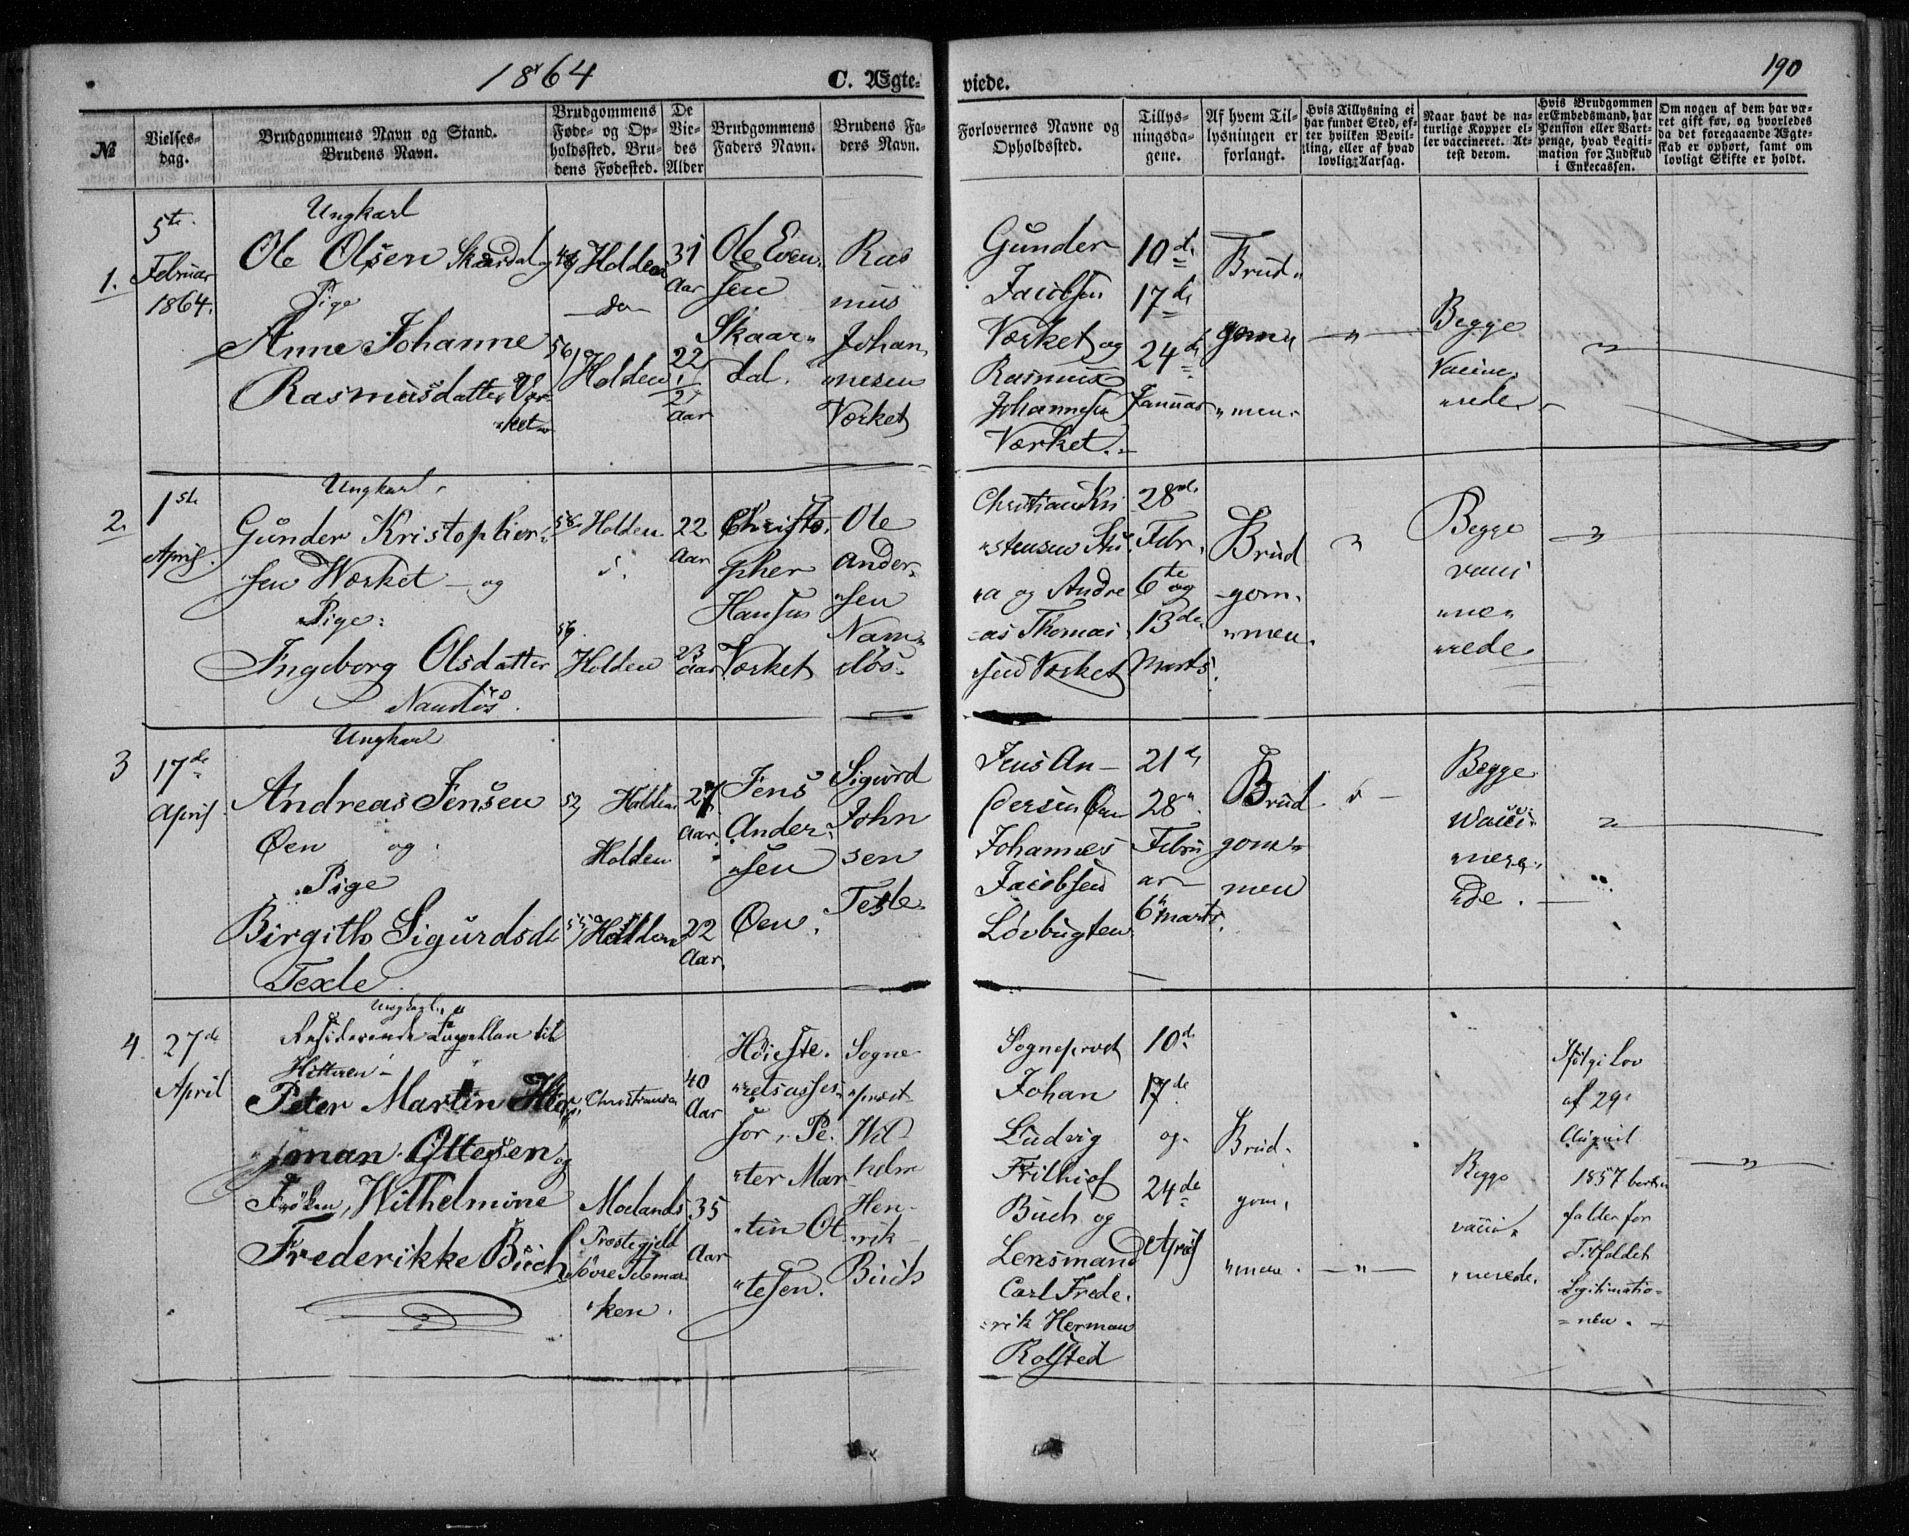 1864
C. Ægte-
viede.
190
№
Vielses-
dag.
Brudgommens Navn og Stand.
Brudens Navn.
Brudgommens
Føde- og Op-
holdssted. Bru-
dens Fødested.
De
Vie-
des
Alder
Brudgommens
Faders Navn.
Brudens Fa-
ders Navn.
Forlovernes Navne og
Opholdssted.
Tillys-
ningsda-
gene.
Af hvem Til-
lysningen er
forlangt.
Hvis Tillysning ei
har fundet Sted, ef-
ter hvilken Bevil-
ling, eller af hvad
lovlig Aarsag.
Naar havt de na-
turlige Kopper el-
ler vaccineret. At-
test derom.
Hvis Brudgommen
er Embedsmand, har
Pension eller Vart-
penge, hvad Legiti-
mation for Indskud
i Enkecassen.
Om nogen af dem har væ-
ret gift før, og hvorledes
da det foregaaende Ægte-
skab er ophørt, samt om
lovligt Skifte er holdt.
1.
5te
Februar
1864.
Ungkarl
Ole Olsen Skaardal og
Pige
Anne Johanne
Rasmusdatter Vær-
ket
Holden
do
Holden
31
Aar
22
1/2
Aar
Ole Even
sen
Skaar
dal.
Ras
mus
Johan
nesen
Værket
Gunder
Jacobsen
Værket og
Rasmus
Johannesen
Værket.
10de
17de
24de
Januar
Brud
gom
men
Begge
Vacine
rede
2.
1ste
April
Ungkarl
Gunder Kristopher
sen Værket og
Pige:
Ingeborg Olsdatter
Namløs.
58
Holden
59
Holden
22
Aar
23
Aar
Christo
pher
Hansen
Værket
Ole
Ander
sen
Nam
løs
Christian Kri
stensen Stu
a og Andre
as Thomas
sen Værket
28de
Febr.
6te og
13de
Marts
Brud
gom
men.
Begge
vaci
ne
rede
3
17de
April
Ungkarl
Andreas Jensen
Øen og
Pige
Birgithe Sigurdsdr
Texle
52
Holden
Holden
Holden
27
Aar
22
Aar.
Jens
Ander
sen
Øen.
Sigurd
John
sen
Texle
Jens An-
dersen Øen
Johannes
Jacobsen
Løvbugten
21de
28de
Febru
ar
6te Marts.
Brud
gom
men
Begge
Vacci
nere
de.
4.
27de
April
Ungkarl
Residerende Capellan til
Hitteren
Peter Martin
Ottesen og
Frøken, Wilhelmine
Frederikke Buch
Christiania
Moelands
Præstegjeld
Øvre Telemar
ken.
40
Aar
35
Aar
Høieste
retsasses
sor, Pe
ter Mar
tin Ot
tesen.
Sogne
provst
Wil
helm
Hen
rik
Buch
Sogneprost
Johan
Ludvig
Frithiof
Buch og
Lensmand
Carl Frede
rik Herman
Rolsted
10de
17de
og
24de
April
Brud
gom
men
Begge
vacci
nerede
Ifølge Lov
af 29
August
1857 bort
falder for
Tilfældet
Legitimatio
nen.